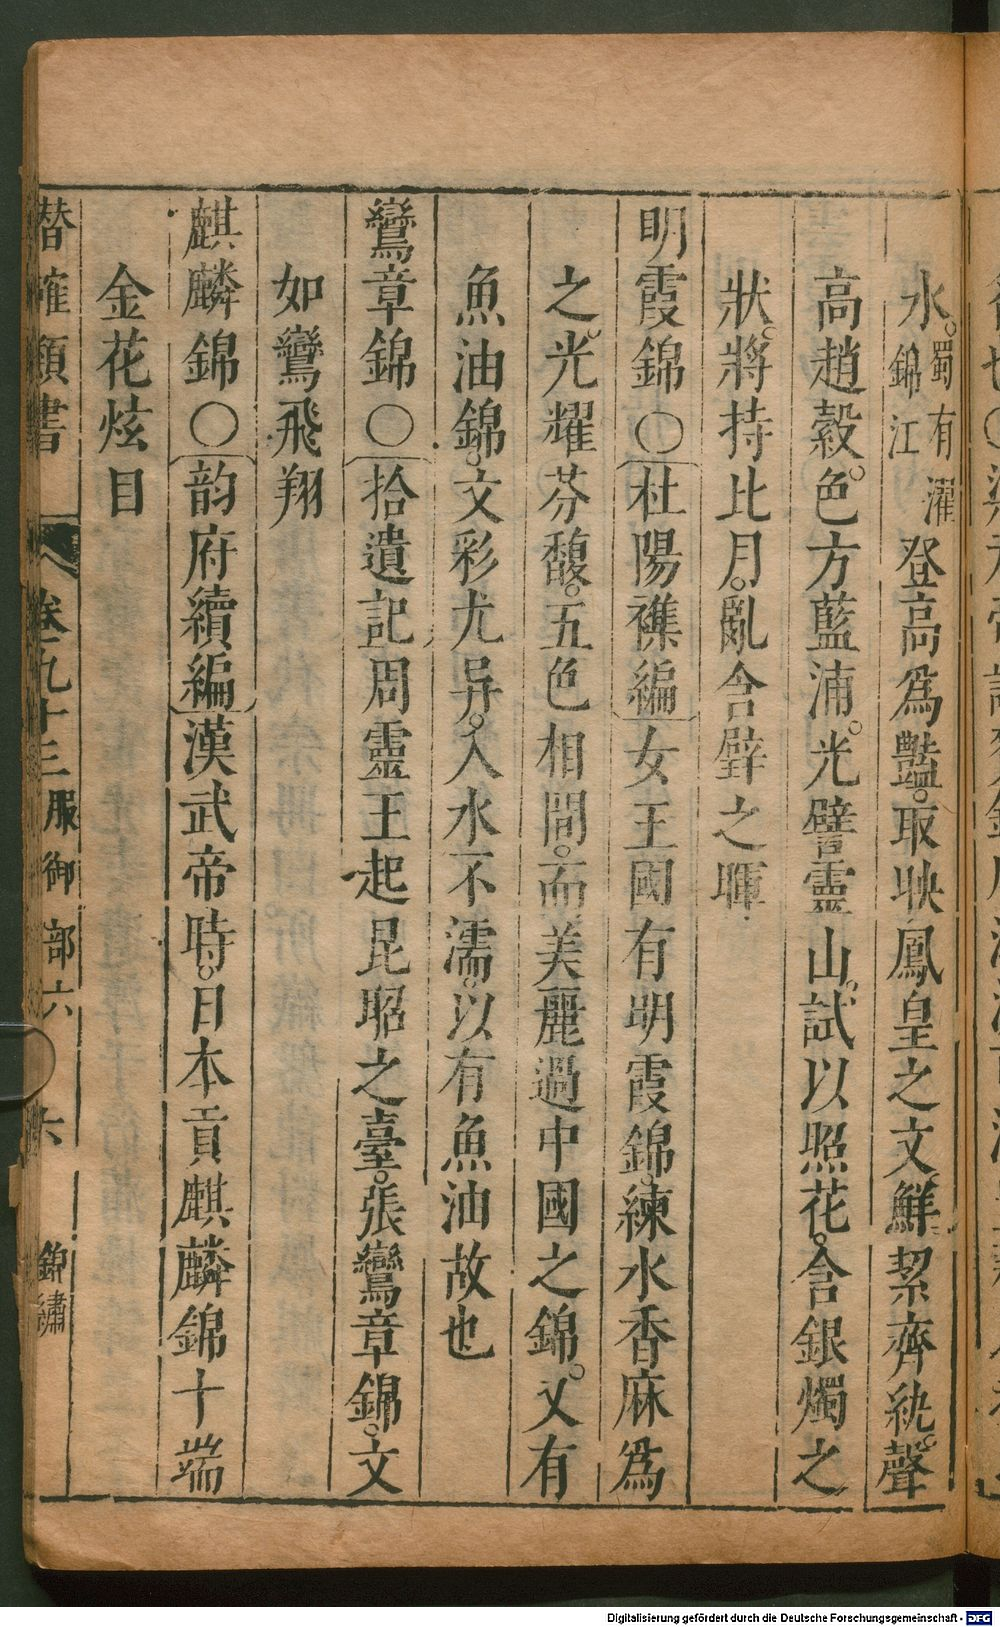 水。蜀有濯錦江登高為豔。取映鳳皇之文。鮮絜齊紈。聲
高趙縠。色方藍浦。光譬靈山。試以照花。含銀燭之
狀。將持比月。亂含璧之暉
明霞錦〇杜陽襍編女王國有明霞錦。練水香麻為
之。光耀芬馥。五色相間。而美麗過中國之錦。又有
魚油錦。文彩尤异。入水不濡。以有魚油故也
鸞章錦〇拾遺記周靈王起昆昭之臺。張鸞章錦。文
如鸞飛翔
麒麟錦〇韵府續編漢武帝時。日本貢麒麟錦十端
金花炫目
潜確類書 卷九十三 服御部六 六 錦繡
Digitalisierung gefördert durch die Deutsche Forschungsgemeinschaft - DFG